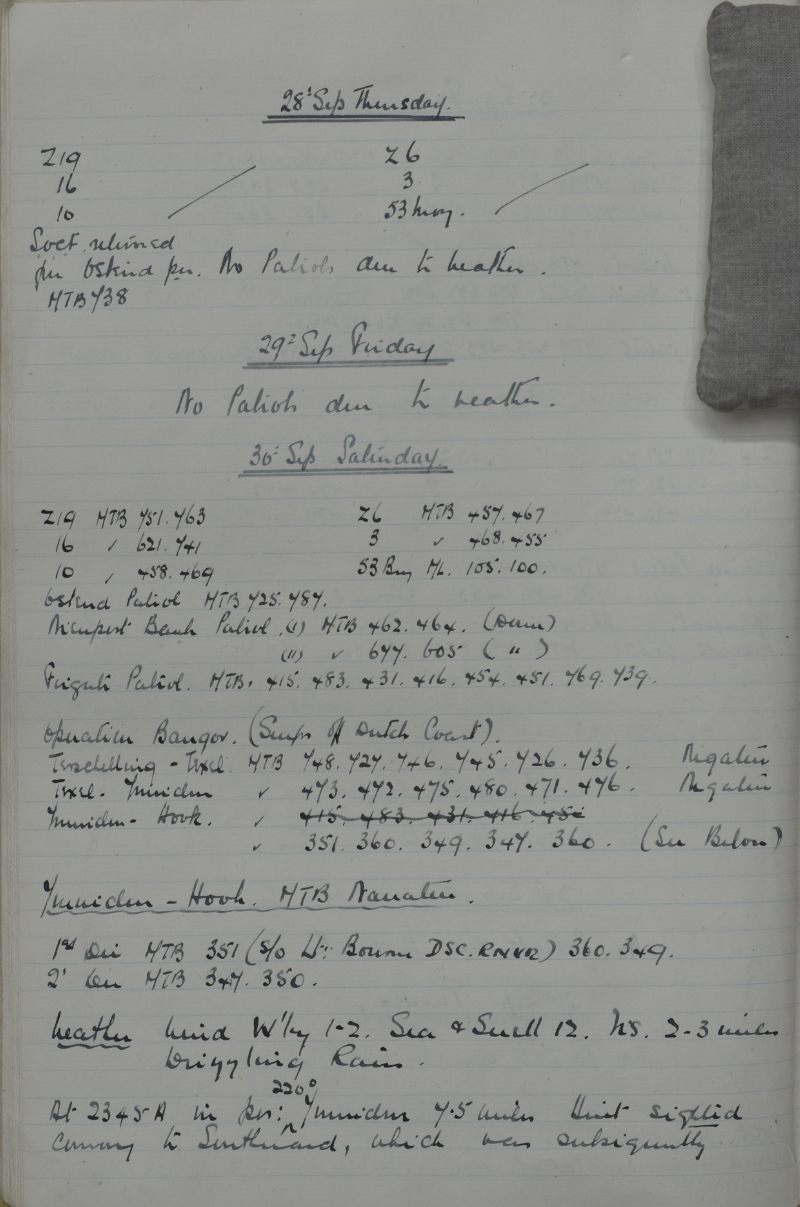 28' Sep Thursday.
Z19 Z6
16 3
10 53 Mony.
returned
Ostend No Patrols due to Weather.
MTB 738
29' Sep Friday
No Patrols due to weather.
30' Sep Saturday.
Z19 MTB 751. 763 Z6 MTB 457. 467
16 " 621. 741 3 " 468. 455
10 " 458. 469 53 ML. 105. 100.
Ostend Patrol MTB 725. 787.
Nieuport Bank Patrol. (i) MTB 462. 464. (Down)
(ii) " 677. 605 ( " )
Frigate Patrol. MTBs 415. 483. 431. 416. 454. 451. 769. 739.
Operation Bangor. (Sweeps off Dutch Coast).
Terschelling - Texel MTB 748. 727. 746. 745. 726. 736. Negative
Texel - Ymuiden " 473. 472. 475. 480. 471. 476. Negative
Ymuiden - Hook. " 415. 483. 431. 416. 454
" 351. 360. 349. 347. 360. (See Below)
Ymuiden - Hook. MTB Narrative.
1st Div MTB 351 (S/O Lt: Bourne DSC. RNVR) 360. 349.
2' Div MTB 347. 350.
Weather Wind W'ly 1-2. Sea & Swell 12. Vis. 2-3 miles
Drizzling Rain.
At 2345A in pos: 220° Ymuiden 7.5 miles Unit sighted
convoy to Southward, which was subsequently